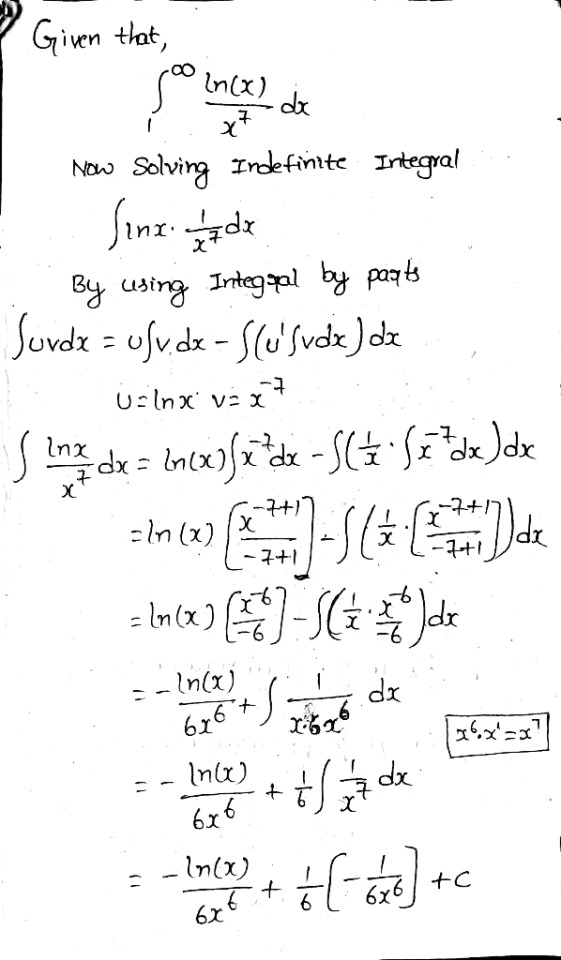 Given that,
∫₁^∞ ln(x)/x⁷ dx
Now Solving Indefinite Integral
∫lnx · 1/x⁷ dx
By using Integral by parts
∫uvdx = u∫v.dx - ∫(u'∫vdx)dx
u=lnx v= x⁻⁷
∫ lnx/x⁷ dx = ln(x)∫x⁻⁷dx - ∫(1/x · ∫x⁻⁷dx)dx
=ln(x) [x⁻⁷⁺¹/-7+1] - ∫(1/x · [x⁻⁷⁺¹/-7+1])dx
= ln(x) [x⁻⁶/-6] - ∫(1/x · x⁻⁶/-6)dx
= - ln(x)/6x⁶ + ∫ 1/x·6x⁶ dx
x⁶.x¹=x⁷
= - ln(x)/6x⁶ + 1/6 ∫ 1/x⁷ dx
= - ln(x)/6x⁶ + 1/6 [- 1/6x⁶] +c